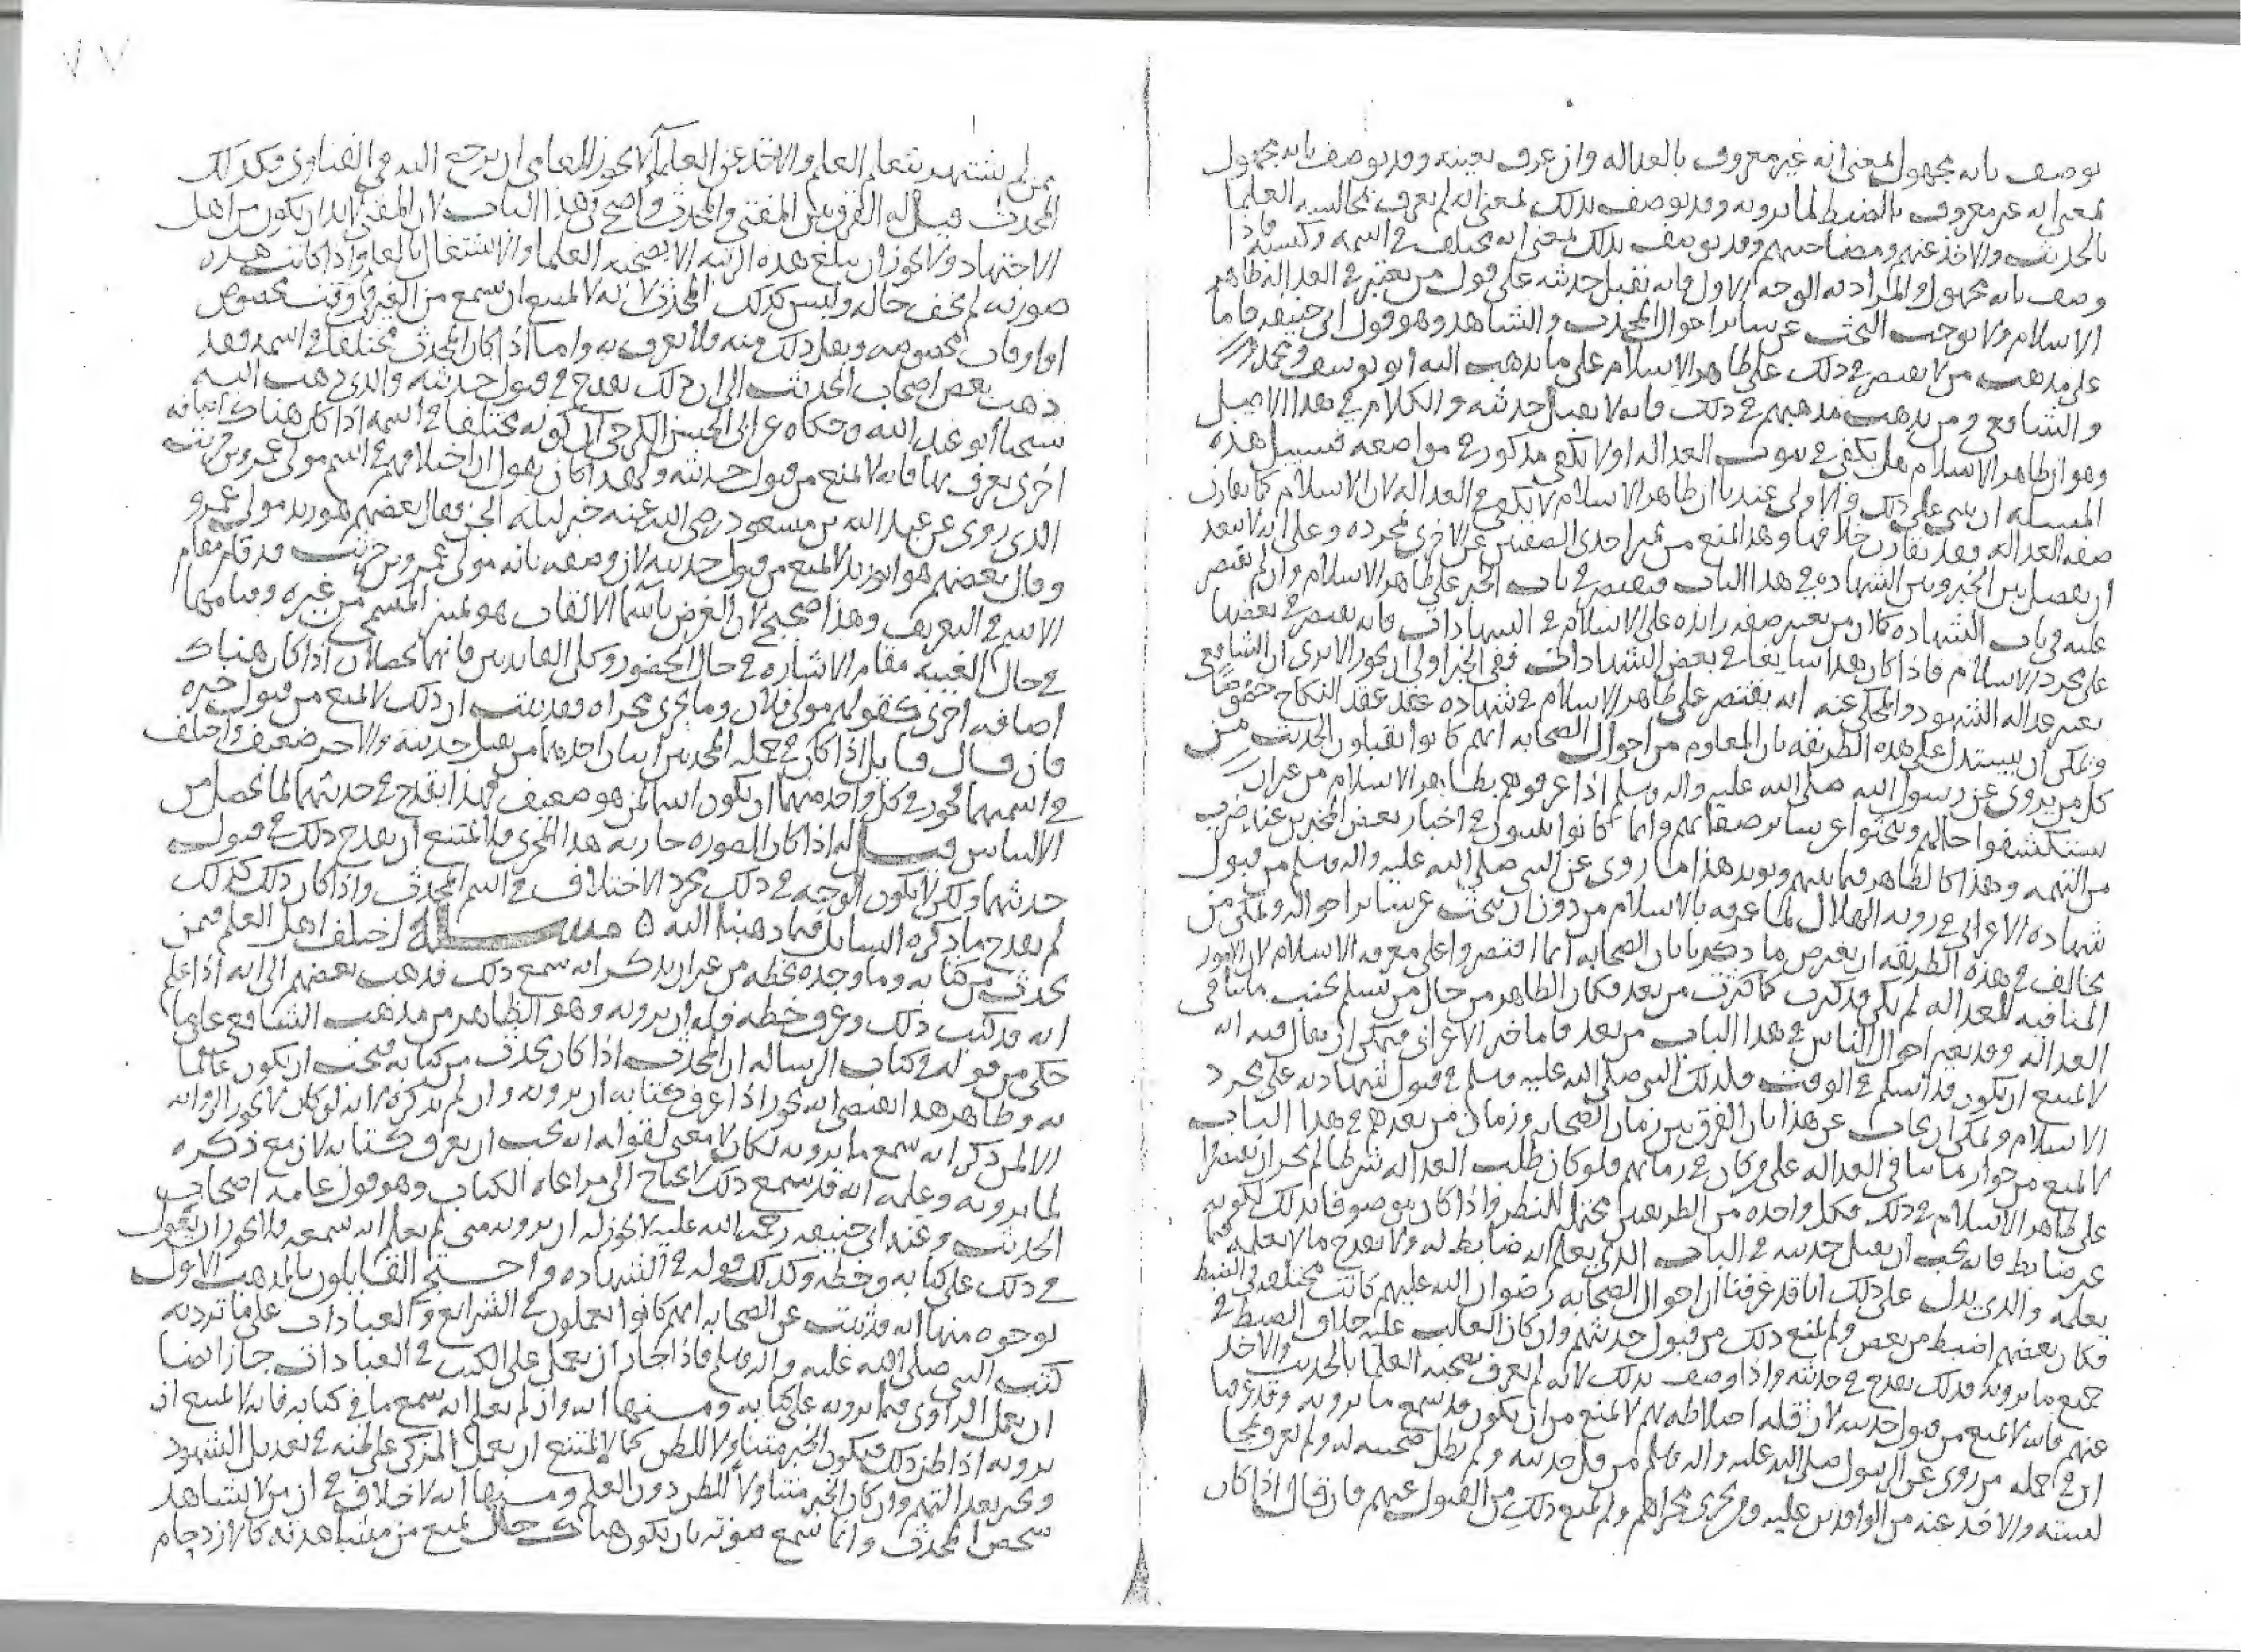 يوصف بانه مجهول لمعنى انه غير معروف بالعداله وان عرف بعينه وقد يوصف بانه مجهول
لمعنى انه غير معروف بالضبط لما يرويه وقد يوصف بذلك لمعنى انه لم يعرف بمجالسه العلما
بالحديث والاخذ عنهم ومصاحبتهم وقد يوصف بذلك لمعنى انه مختلف في اسمه وكنيته فاذا
وصف بانه مجهول والمراد به الوجه الاول فانه يقبل حديثه على قول من يعتبر في العداله ظاهر
الاسلام ولا يوجب البحث عن ساير احوال المحدث والشاهد وهو قول ابي حنيفه فاما
على مذهب من لا يقتصر في ذلك على ظاهر الاسلام على ما يذهب اليه ابو يوسف ومحمد
والشافعي ومن يذهب مذهبهم في ذلك فانه لا يقبل حديثه والكلام في هذا الاصل
وهو ان ظاهر الاسلام هل يكفي في ثبوت العداله او لا يكفي مذكور في مواضعه فسبيل هذه
المسله ان تبنى على ذلك والاولى عندنا ان ظاهر الاسلام لا يكفي في العداله لان الاسلام كما يقارن
صفه العداله فقد يقارن خلافها وهذا يمنع من تميز احدى الصفتين عن الاخرى بمجرده وعلى انه لا يبعد
ان يفصل بين الخبر وبين الشهاده في هذا الباب فيقتصر في باب الخبر على ظاهر الاسلام وان لم يقتصر
عليه في باب الشهاده كما ان من يعتبر صفه زائده على الاسلام في الشهادات فانه يقتصر في بعضها
على مجرد الاسلام فاذا كان هذا سايغا في بعض الشهادات ففي الخبر اولى ان يجوز الا ترى ان الشافعي
يعتبر عداله الشهود والمحكي عنه انه يقتصر على ظاهر الاسلام في شهاده عقد النكاح خصوصا
ويمكن ان يستدل على هذه الطريقه بان المعلوم من احوال الصحابه انهم كانوا يقبلون الحديث من
كل من يروى عن رسول الله صلى الله عليه واله وسلم اذا عرفوهم بظاهر الاسلام من غير ان
يستكشفوا حالهم ويبحثوا عن ساير صفاتهم وانما كانوا يتلقون في اخبار بعض المخبرين عناء ضرب
من التهمه وهذا كالظاهر فيما بينهم ويويد هذا ما روى عن النبي صلى الله عليه واله وسلم من قبول
شهاده الاعرابي في رويه الهلال لما عرفه بالاسلام من دون ان يبحث عن ساير احواله ويمكن من
يخالف في هذه الطريقه ان يعترض ما ذكرنا بان الصحابه انما اقتصروا على معرفه الاسلام لان الامور
المنافيه للعداله لم تكن قد كثرت كما كثرت من بعد فكان الظاهر من حال من يسلم تجنب ما ينافي
العداله وقد تغير احوال الناس في هذا الباب من بعد فاما خبر الاعرابي فيمكن ان يقال فيه انه
لا يمتنع ان يكون قد اسلم في الوقت فلذلك النبي صلى الله عليه وسلم في قبول شهادته على مجرد
الاسلام ويمكن ان يجاب عن هذا بان الفرق بين زمان الصحابه وزمان من بعدهم في هذا الباب
لا يمنع من جواز ما ينافي العداله على من كان في زمانهم فلو كان طلب العداله شرطا لم يجز ان يقتصروا
على ظاهر الاسلام في ذلك فكل واحده من الطريقتين محتمله للنظر واذا كان موصوفا بذلك لكونه
غير ضابط فانه يجب ان يقبل حديثه في الباب الذي يعلم انه ضابط له ولا يقدح ما لا يعلمه فيما
يعلمه والذي يدل على ذلك انا قد عرفنا ان احوال الصحابه رضوان الله عليهم كانت مختلفه في الضبط
فكان بعضهم اضبط من بعض ولم يمنع ذلك من قبول حديثهم وان كان الغالب عليه خلاف الضبط في
جميع ما يرويه فذلك يقدح في حديثه واذا وصف بذلك لانه لم يعرف بصحبه العلما بالحديث والاخذ
عنهم فانه لا يمنع من قبول حديثه لان قله اختلاطه بهم لا يمنع من ان يكون قد سمع ما يرويه وقد عرفنا
ان في جمله من روى عن الرسول صلى الله عليه واله وسلم من قبل حديثه ولم يطل صحبته له ولم يعرف بمجا
لسته والاخذ عنه من الوافدين عليه ومن يجرى مجراهم ولم يمنع ذلك من القبول عنهم فان قال اذا كان
من لم يشتهر بتعلم العلم والاخذ عن العلماء لا يجوز للعامي ان يرجع اليه في الفتاوى فكذلك
المحدث قيل له الفرق بين المفتي والمحدث واضح في هذا الباب لان المفتي لا بد ان يكون من اهل
الاجتهاد ولا يجوز ان يبلغ هذه الرتبه الا بصحبه العلما والاشتغال بالعلم واذا كانت هذه
صورته لم تخف حاله وليس كذلك المحدث لانه لا يمتنع ان يسمع من الغير في وقت مخصوص
او اوقات مخصوصه وينقل ذلك عنه ولا يعرف به واما اذا كان المحدث مختلفا في اسمه فقد
ذهب بعض اصحاب الحديث الى ان ذلك يقدح في قبول حديثه والذي ذهب اليه
شيخنا ابو عبد الله وحكاه عن ابي الحسن الكرخي ان كونه مختلفا في اسمه اذا كان هناك اضافه
اخرى يعرف بها فانه لا يمنع من قبول حديثه ولهذا كان يقول ان اختلافهم في اسم مولى عمرو بن حريث
الذي روى عن عبد الله بن مسعود رضي الله عنه خبر ليله الجن فقال بعضهم هو زيد مولى عمرو
وقال بعضهم هو ابو زيد لا يمنع من قبول حديثه لان وصفه بانه مولى عمرو بن حريث قد قام مقام
الاسم في التعريف وهذا صحيح لان الغرض باسما الالقاب هو تميز المسمى من غيره وقيامها
في حال الغيبه مقام الاشاره في حال الحضور وكل الفايدتين فانهما تحصلان اذا كان هناك
اضافه اخرى كقولهم مولى فلان وما يجرى مجراه فقد ثبت ان ذلك لا يمنع من قبول خبره
فان قال قايل اذا كان في جمله المحدثين اثنان احدهما من يقبل حديثه والاخر ضعيف واختلف
في اسميهما فجوز في كل واحد منهما ان يكون اسما لمن هو ضعيف فهذا يقدح في حديثهما لما يحصل من
الالتباس قيل له اذا كان الصوره جاريه هذا المجرى فلا يمتنع ان يقدح ذلك في قبول
حديثهما ولكن لا يكون الوجه في ذلك مجرد الاختلاف في اسم المحدث واذا كان ذلك كذلك
لم يقدح ما ذكره السايل فيما ذهبنا اليه ٥ مسله اختلف اهل العلم فيمن
يحدث من كتابه وما وجده بخطه من غير ان يذكر انه سمع ذلك فذهب بعضهم الى انه اذا علم
انه قد كتب ذلك وعرف خطه فله ان يرويه وهو الظاهر من مذهب الشافعي على ما
حكي من قوله في كتاب الرساله ان المحدث اذا كان يحدث من كتابه فيجب ان يكون عالما
به وظاهر هذا يقتضي انه يجوز اذا عرف كتابه ان يرويه وان لم يذكره لانه لو كان لا يجوز الروايه
الا لمن ذكر انه سمع ما يرويه لكان لا معنى لقوله انه يجب ان يعرف كتابه لان مع ذكره
لما يرويه وعلمه انه قد سمع ذلك لا يحتاج الى مراعاه الكتاب وهو قول عامه اصحاب
الحديث وعند ابي حنيفه رحمه الله عليه لا يجوز له ان يرويه متى لم يعلم انه سمعه ولا يجوز ان يعول
في ذلك على كتابه وخطه وكذلك قوله في الشهاده واحتج القايلون بالمذهب الاول
بوجوه منها انه قد ثبت عن الصحابه انهم كانوا يعملون في الشرايع والعبادات على ما ترد به
كتب النبي صلى الله عليه واله وسلم فاذا جاز ان يعمل على الكتب في العبادات جاز ايضا
ان يعمل الراوى فيما يرويه على كتابه ومنها انه وان لم يعلم انه سمع ما في كتابه فانه لا يمتنع ان
يرويه اذا ظن ذلك فيكون الخبر متناولا للظن كما لا يمتنع ان يعمل المزكي على ظنه في تعديل الشهود
ويخبر بعدالتهم وان كان الخبر متناولا للظن دون العلم ومنها انه لا خلاف في ان من لا يشاهد
شخص المحدث وانما سمع صوته بان يكون هناك حال يمنع من مشاهدته كالازدحام